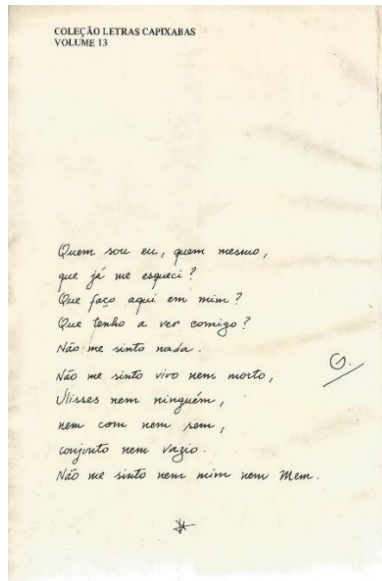 COLEÇÃO LETRAS CAPIXABAS
VOLUME 13
Quem sou eu, quem mesmo,
que já me esqueci?
Que faço aqui em mim?
Que tenho a ver comigo?
Não me sinto nada.
Não me sinto vivo nem morto,
Ulisses nem ninguém,
nem com nem sem,
conjunto nem vazio.
Não me sinto nem mim nem Mem.
G.